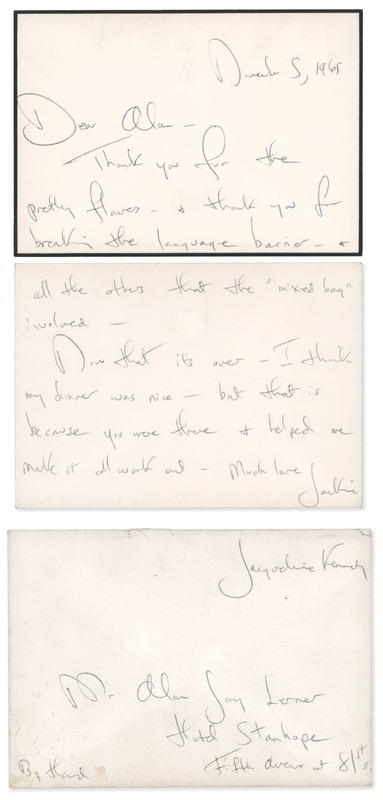 December 5, 1965
Dear Alan —
Thank you for the
pretty flowers — + thank you for
breaking the language barrier — +
all the others that the "mixed bag"
involved —
Now that it's over — I think
my dinner was nice — but that is
because you were there + helped me
make it all work out — Much love
Jackie
Jacqueline Kennedy
Mr Alan Jay Lerner
Hotel Stanhope
By Hand
Fifth avenue at 81st st